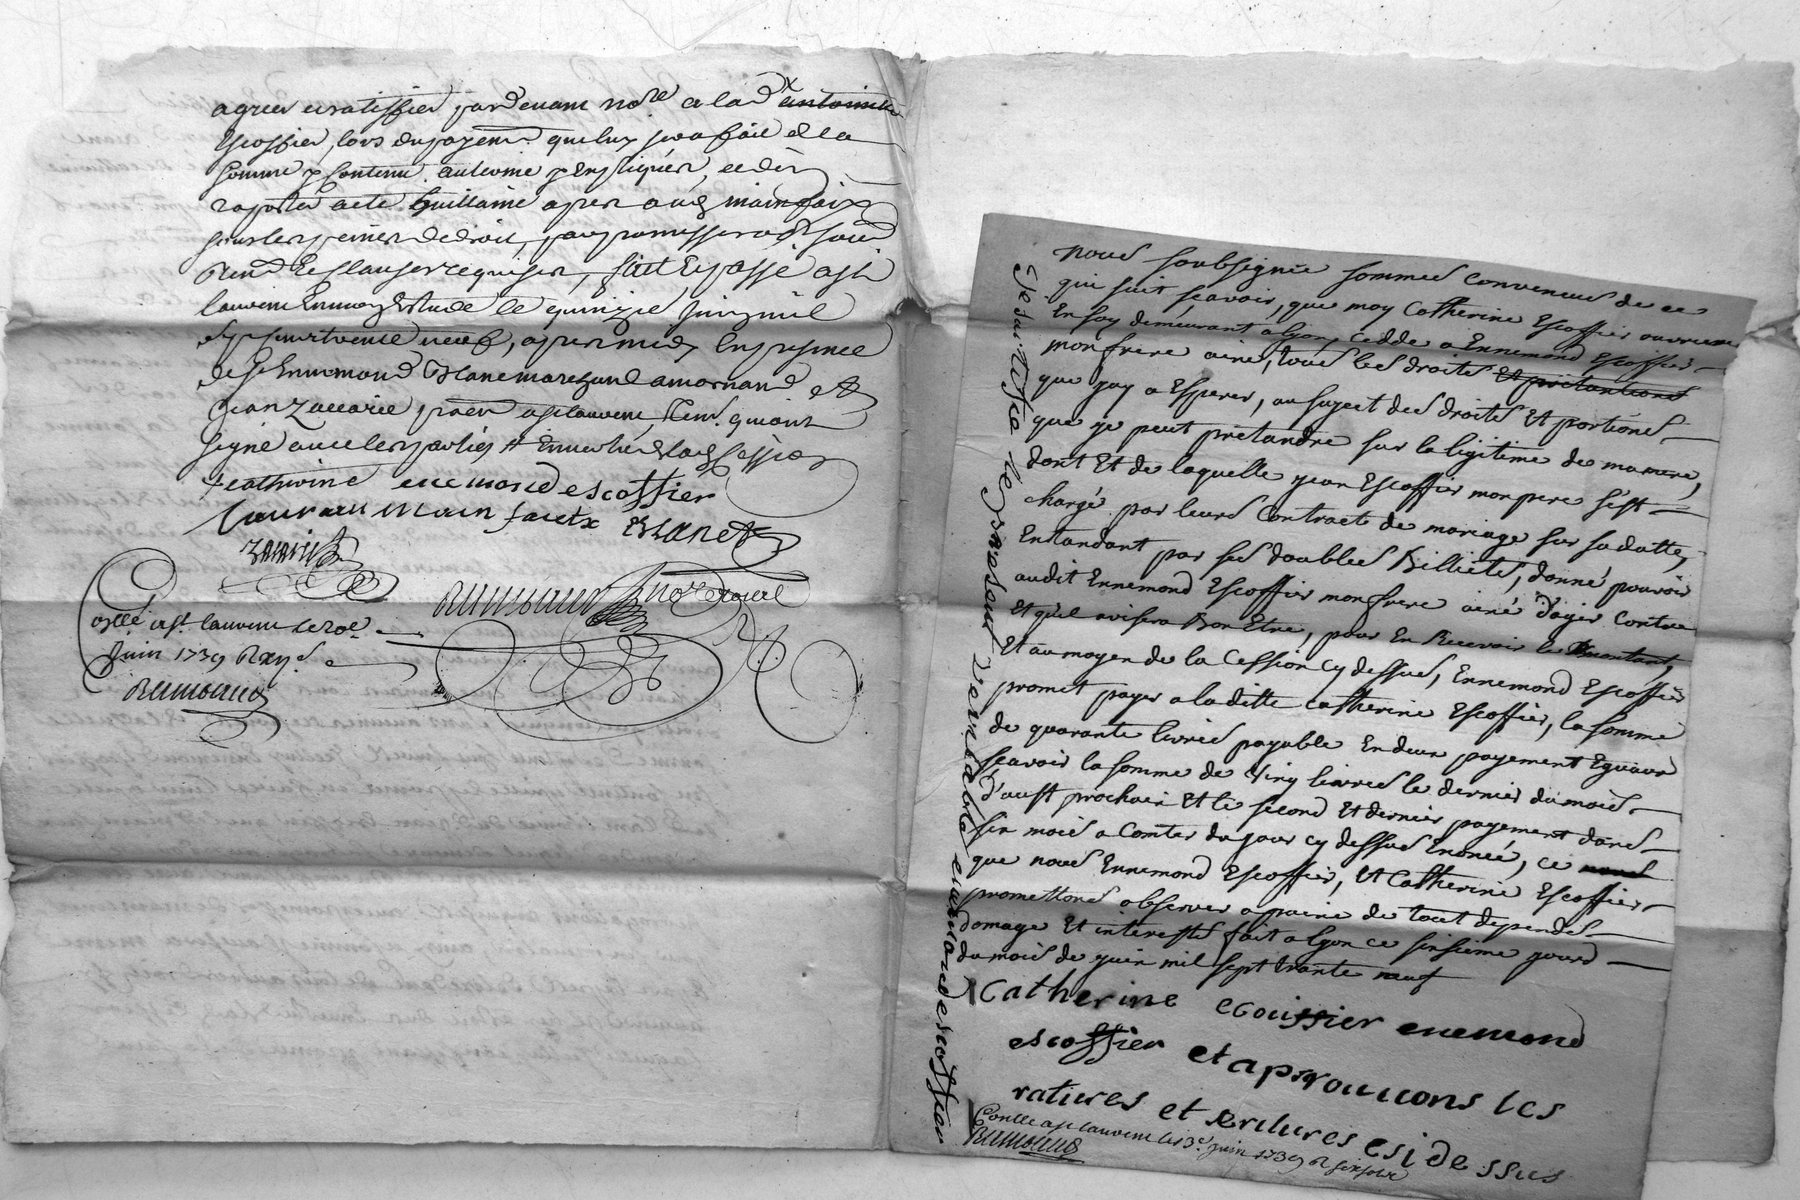 agreer et ratiffier pardevant no.re a lad. x antoinette
Escoffier, lors du payem.t que luy sera fait de la
somme y contenu
raporter acte Guillaume apres mainfaix
sous les peines de droit, par promesse
Renon. Et Clauses requises, fait Et passé a st
laurent Enmon Estude le quinzie juin mil
sept cent trente neuf, apres midy En presence
de s.r Ennemond Blanc marchand a mornand et
jean Zacarie, de st laurent, tem. qui ont
signé avec les parties
x catherine enemond escoffier
mainfaix Blanc
Zacarie
Raimbaud no.re Royal
Collé a st laurent le 20e
juin 1739 R xij s
Raimbaud
Nous soubsignée sommes Convenus de ce
qui suit scavoir, que moy Catherine Escoffier ouvriere
En soy demeurant a lyon, cedde a Ennemond Escoffier
mon frere aine, tous les droits Et prétantions
que jay a Esperer, au suject des droits Et portions
que je peut prétandre sur la legitime de ma mere,
dont Et de laquelle jean Escoffier mon pere s'est
chargé par leurs Contract de mariage sur sa datte,
Entandant par ses doubles Billiets, donné pouvoir
audit Ennemond Escoffier mon frere ainé d'agir Contre
Et qu'il avisera Bon Etre, pour En Recevoir le Montant,
Et au moyen de la Cession cy dessus, Ennemond Escoffier
promet payer a laditte Catherine Escoffier, la somme
de quarante livres payable En deux payement Egiaux
scavoir la somme de vingt livres le dernier du mois
d'aust prochain Et le second Et dernier payement dans
six mois a Comter du jour cy dessus Enoncé, ce nous
que nous Ennemond Escoffier, Et Catherine Escoffier
promettons observer a paine de tout depends
domage Et interests fait a lyon ce sinsieme jours
du mois de juin mil sept trante neuf
Catherine ecoussier enemond
escoffier et aprouuons les
ratures et
Je ratiffie le presens double enemond escoffier
Conllé a st laurent le 13e juin 1739 R six sols
Raimbaud